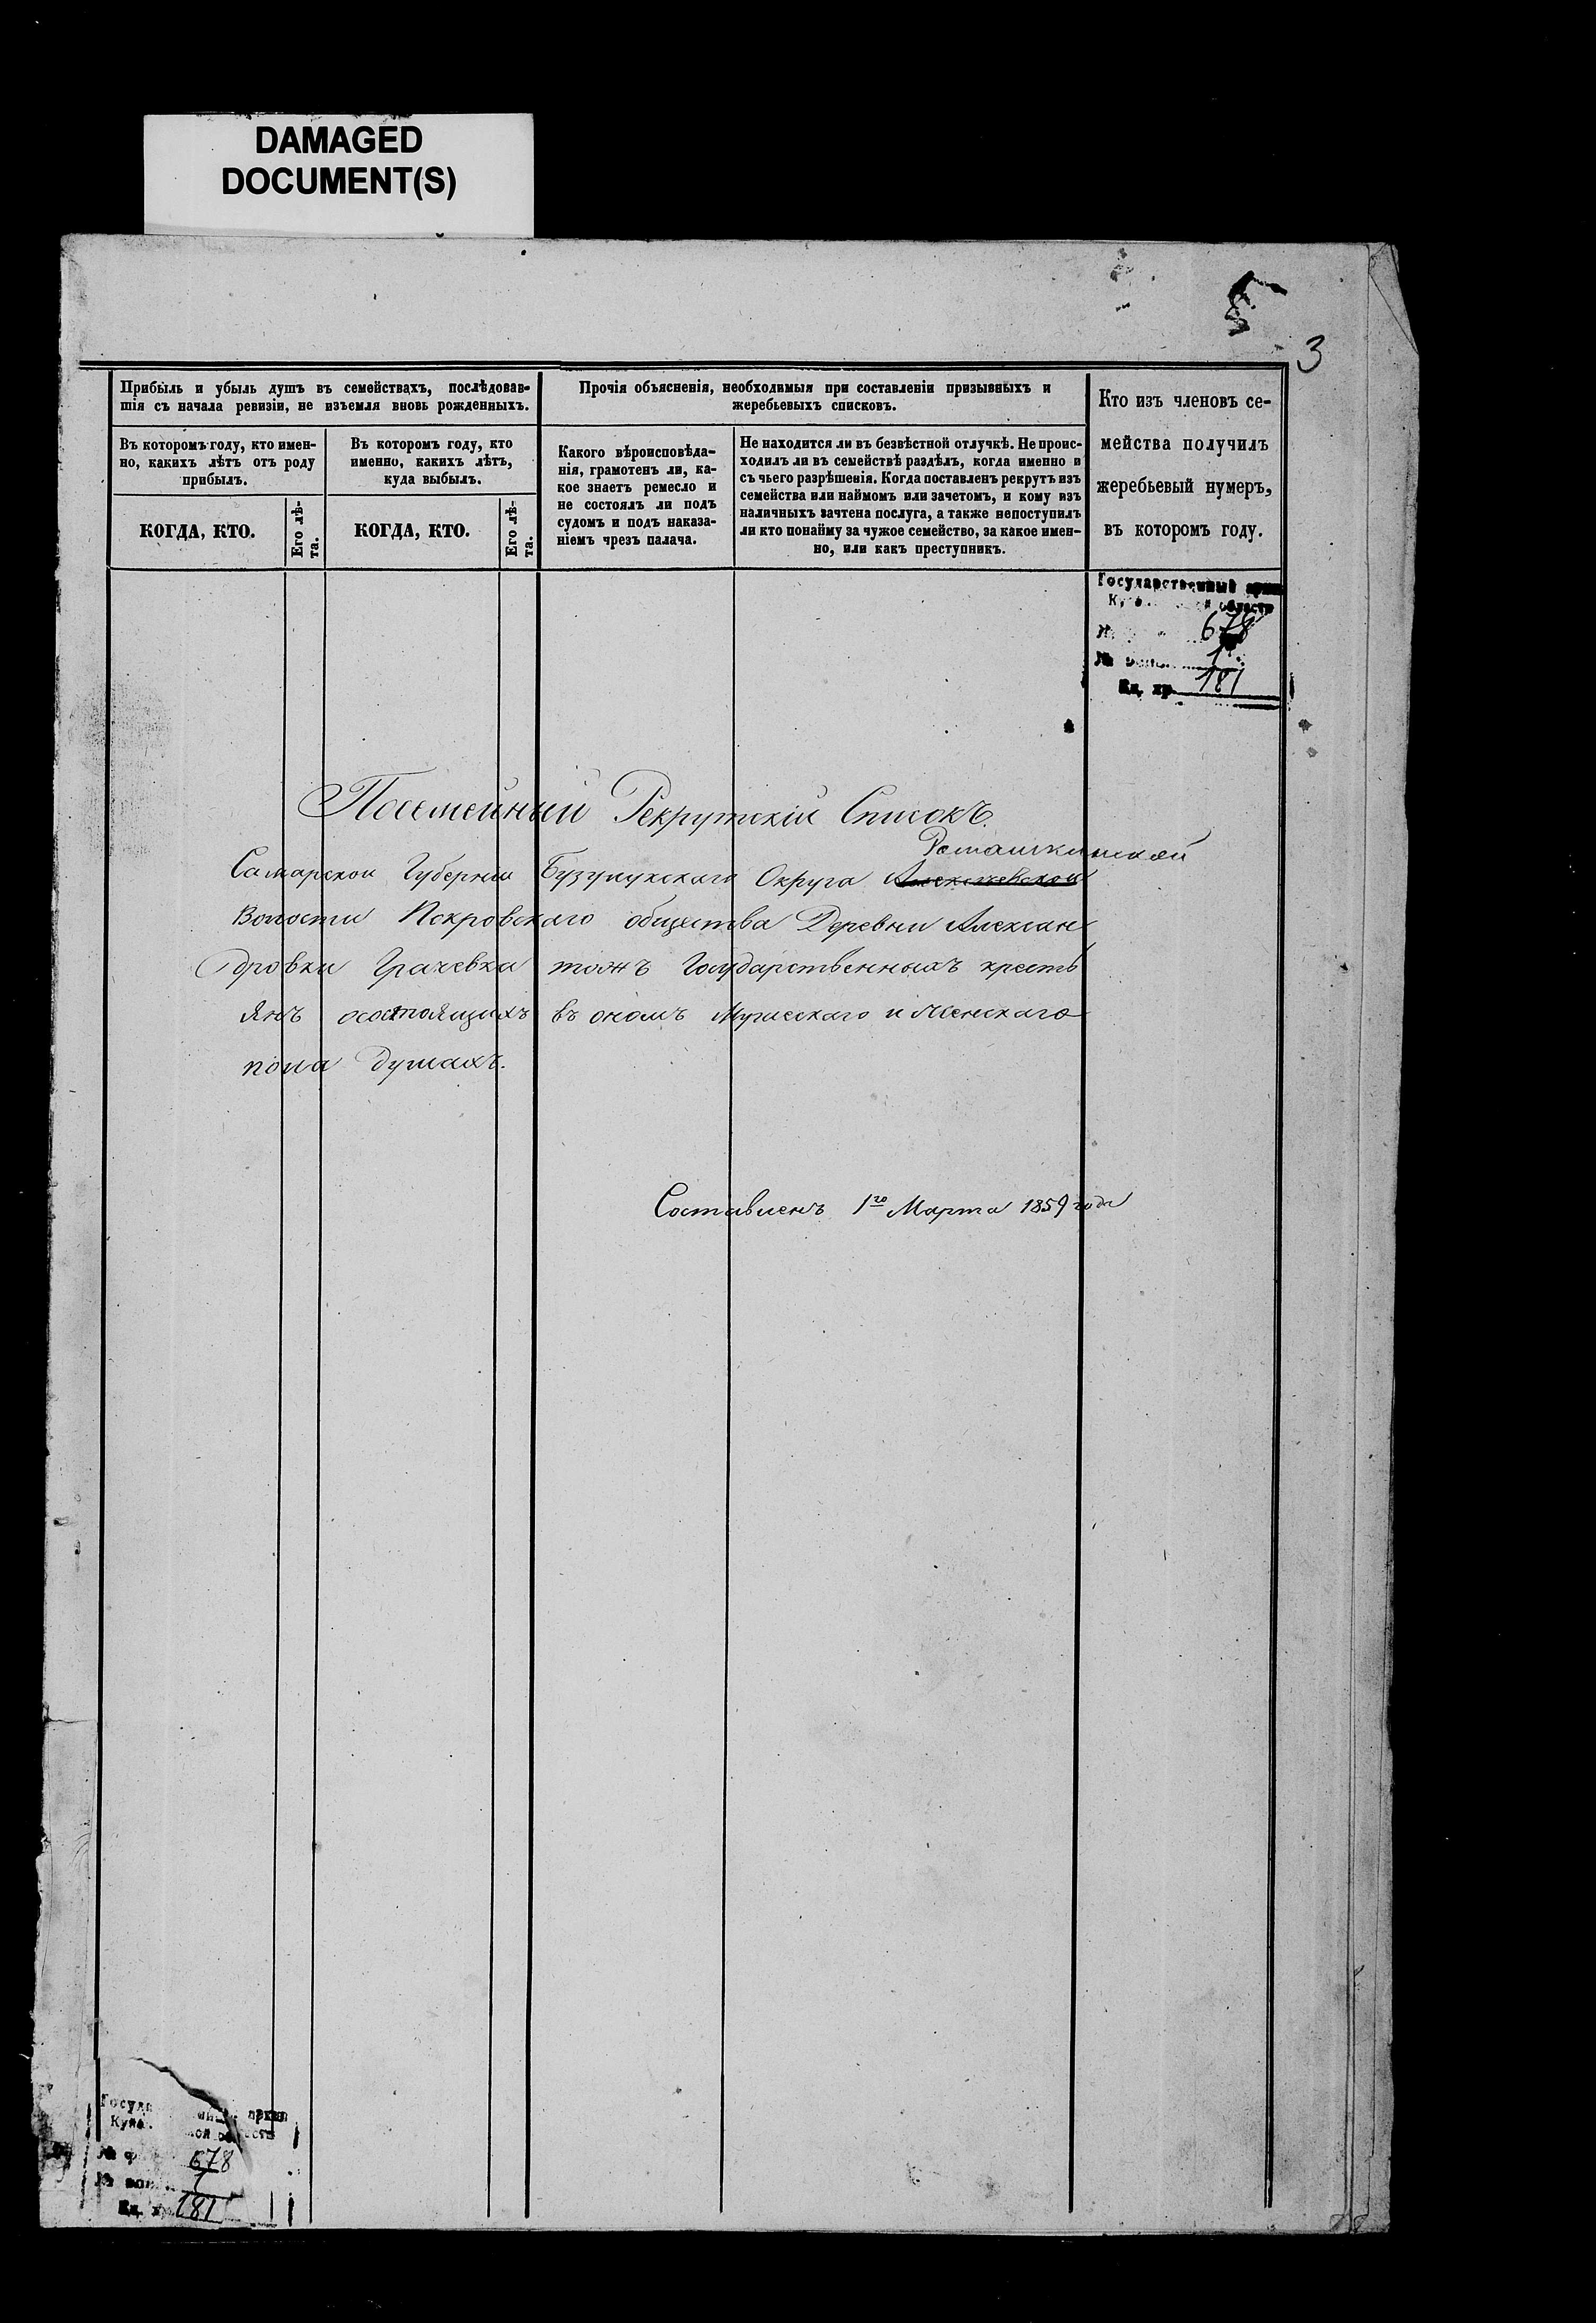 DAMAGED
DOCUMENT(S)
3
Прибыль и убыль душъ въ семействахъ, послѣдовав-
шія съ начала ревизіи, не изъемля вновь рожденныхъ.
Въ которомъ году, кто имен-
но, какихъ лѣтъ отъ роду
прибылъ.
КОГДА, КТО.
Его лѣ-
та.
Въ которомъ году, кто
именно, какихъ лѣтъ,
куда выбылъ.
КОГДА, КТО.
Его лѣ-
та.
Прочія объясненія, необходимыя при составленіи призывныхъ и
жеребьевыхъ списковъ.
Какого вѣроисповѣда-
нія, грамотенъ ли, ка-
кое знаетъ ремесло и
не состоялъ ли подъ
судомъ и подъ наказа-
ніемъ чрезъ палача.
Не находится ли въ безвѣстной отлучкѣ. Не проис-
ходилъ ли въ семействѣ раздѣлъ, когда именно и
съ чьего разрѣшенія. Когда поставленъ рекрутъ изъ
семейства или наймомъ или зачетомъ, и кому изъ
наличныхъ зачтена послуга, а также непоступилъ
ли кто понайму за чужое семейство, за какое имен-
но, или какъ преступникъ.
Кто изъ членовъ се-
мейства получилъ
жеребьевый нумеръ,
въ которомъ году.
Государственный
области
678
№ 1
Ед. хр. 181
Посемейный Рекрутскій Списокъ.
Ромашкинской
Самарской Губерніи Бузулукскаго Округа Алексѣевской
Волости Покровскаго общества Деревни Алексан
дровки Грачевка тожъ Государственныхъ кресть
янъ осостоящихъ въ ономъ Мужескаго и Женскаго
пола душахъ.
Составленъ 1го Марта 1859 года
678
№ 1
Ед. хр. 181